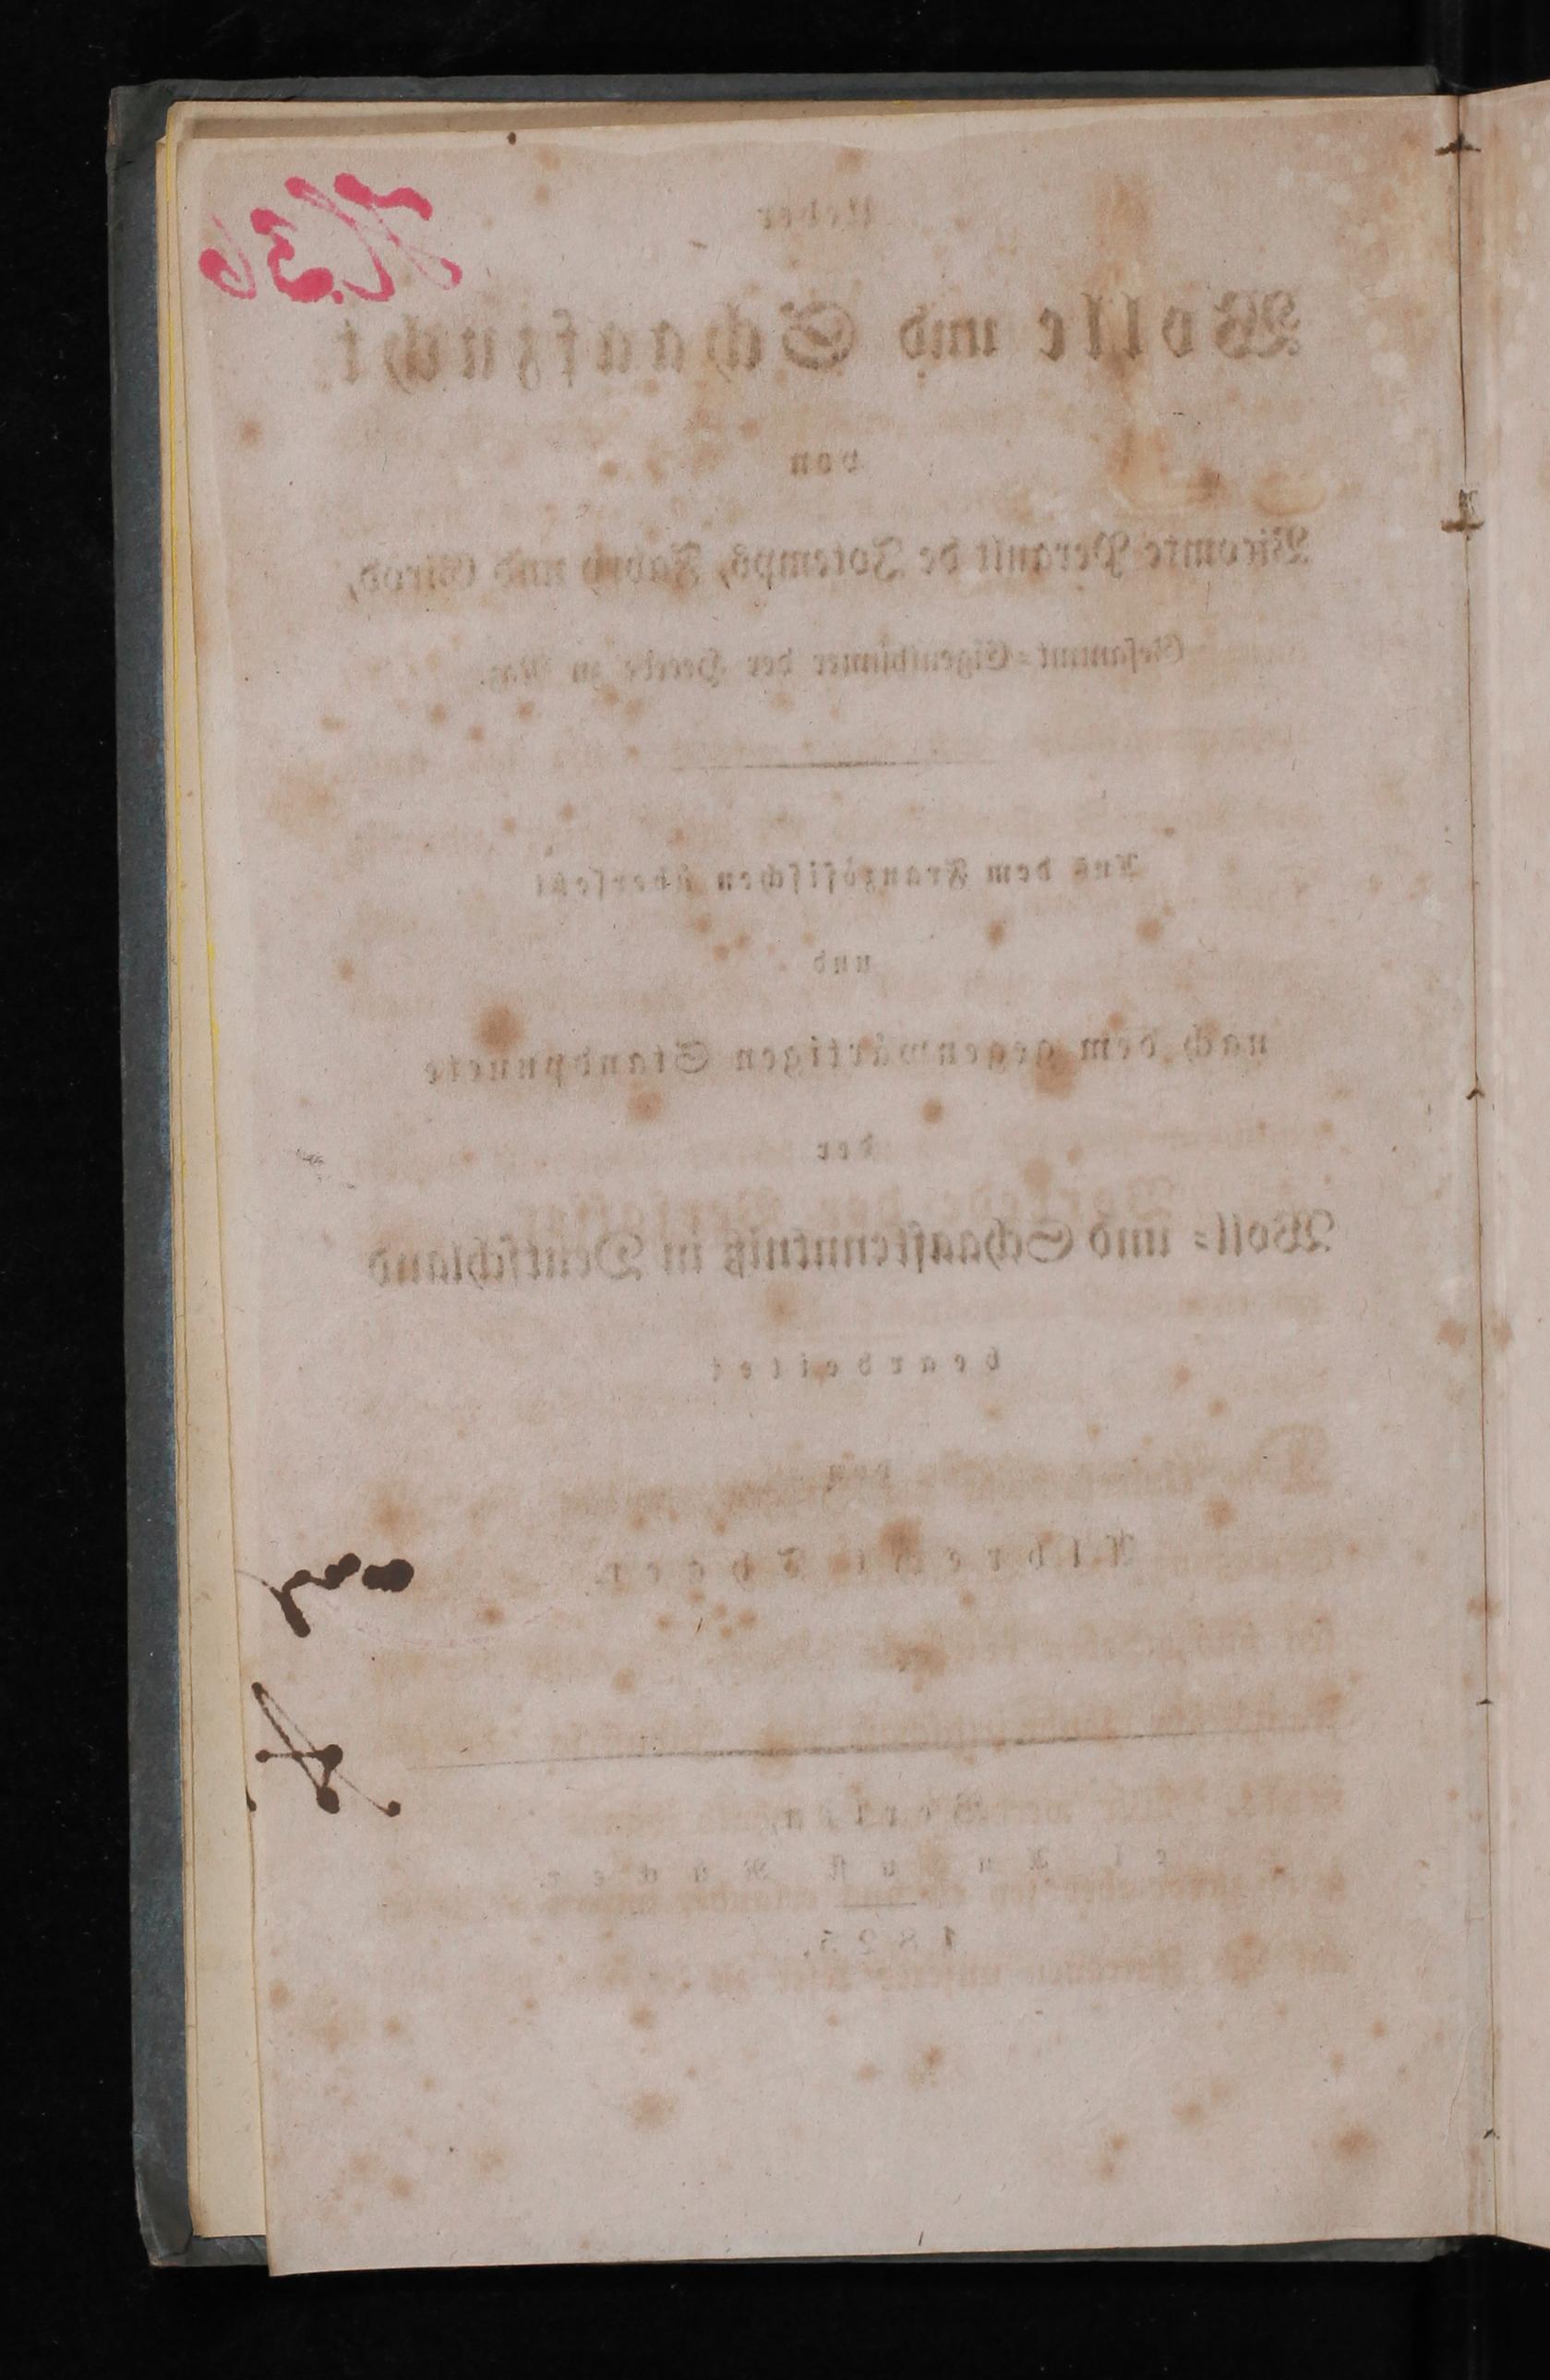 Ueber
Wolle und Schaafzucht
von
Vicomte Perault de Jotemps, Fabry und Girod,
Gesammt-Eigenthümer der Heerde zu Naz.
Aus dem Französischen übersetzt
und
nach dem gegenwärtigen Standpuncte
der
Woll- und Schaafkenntniß in Deutschland
bearbeitet
von
Albrecht Thaer.
Berlin,
August Rücker.
1825.